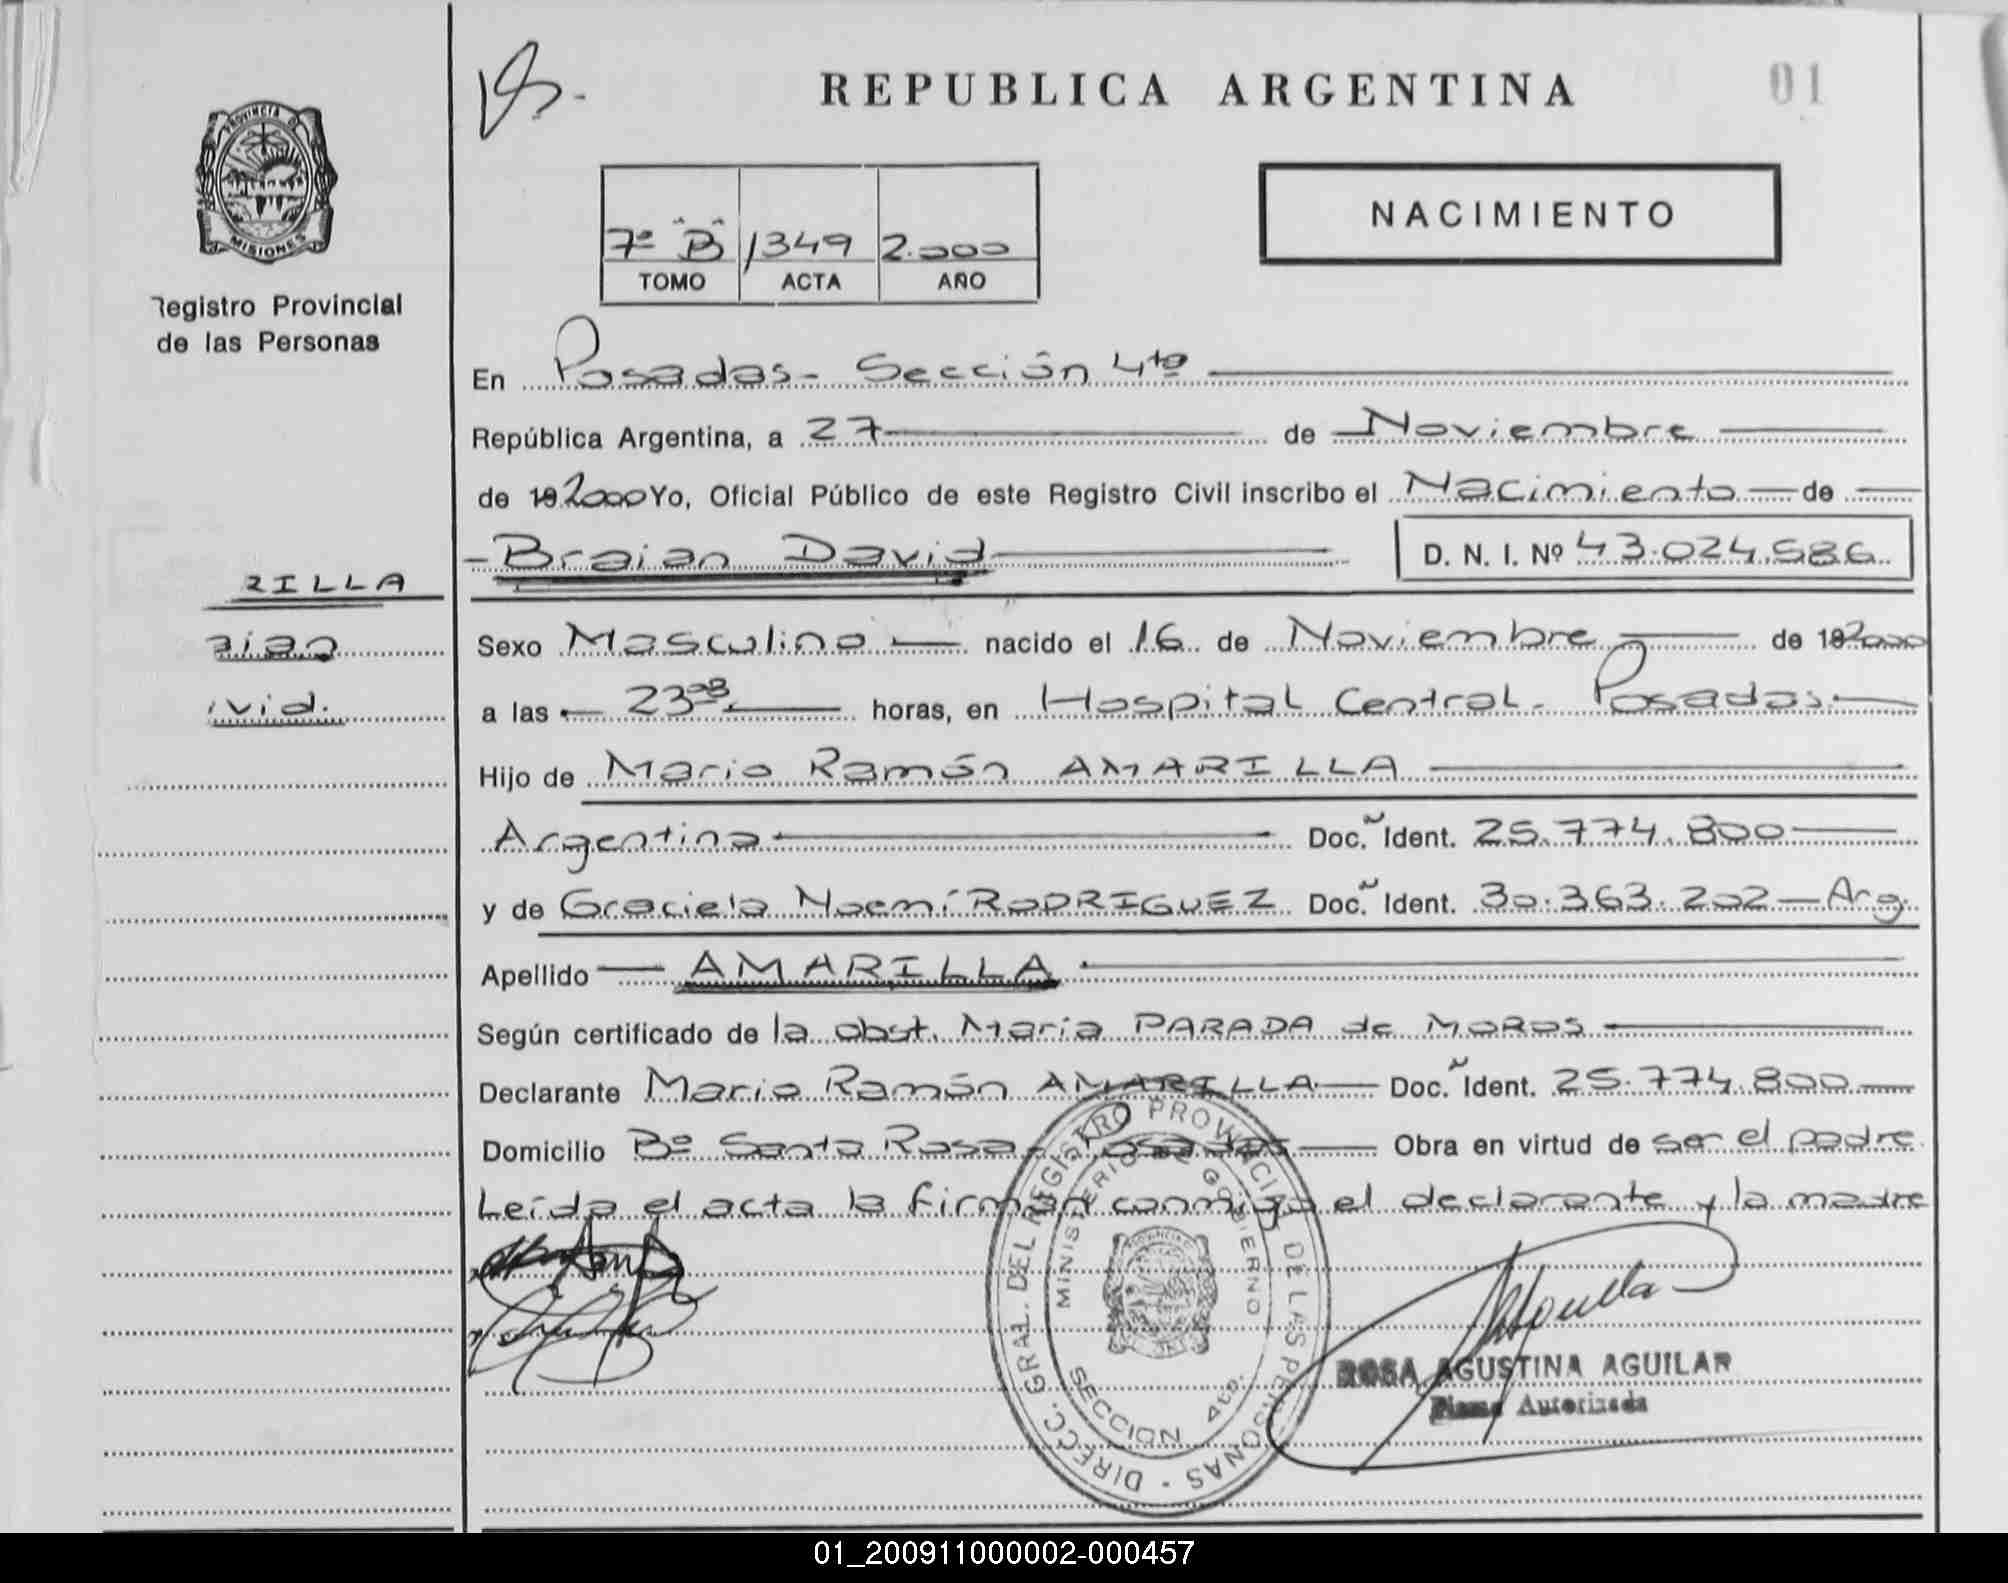 REPUBLICA ARGENTINA
01
PROVINCIA DE
MISIONES
Registro Provincial
de las Personas
7º "B" 1349 2.000
TOMO ACTA AÑO
NACIMIENTO
En Posadas- Sección 4ta
República Argentina, a 27 de Noviembre
de 19 2000 Yo, Oficial Público de este Registro Civil inscribo el Nacimiento de
Braian David
D. N. I. Nº 43.024.586
RILLA
aian
vid.
Sexo Masculino nacido el 16 de Noviembre de 19 2000
a las 23 08 horas, en Hospital Central - Posadas
Hijo de Mario Ramón AMARILLA
Argentina Doc. Ident. 25.774.800
y de Graciela Noemí RODRIGUEZ Doc. Ident. 30.363.202 - Arg.
Apellido AMARILLA
Según certificado de la obst. María PARADA de MOROS
Declarante Mario Ramón AMARILLA Doc. Ident. 25.774.800
Domicilio Bº Santa Rosa - Posadas Obra en virtud de ser el padre
Leída el acta la firman conmigo el declarante y la madre
DIRECC. GRAL. DEL REGISTRO PROVINCIAL DE LAS PERSONAS
MINISTERIO DE GOBIERNO
SECCION 4ta.
ROSA AGUSTINA AGUILAR
Firma Autorizada
01_200911000002-000457